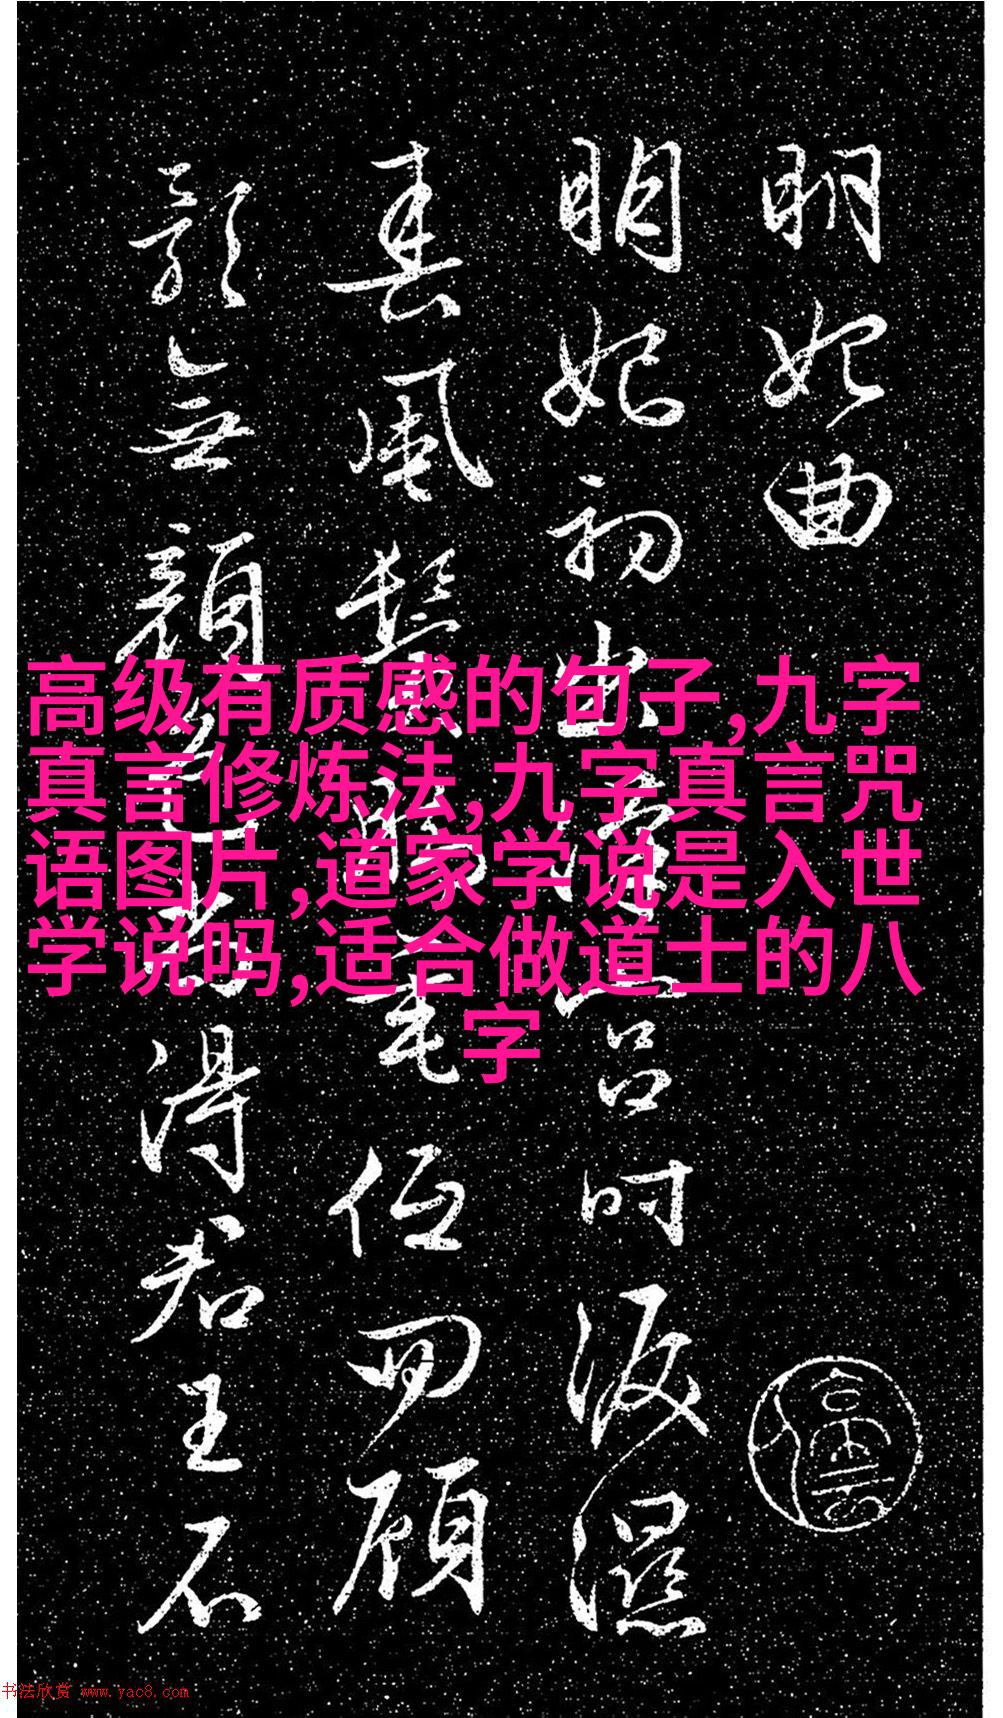 明妃曲
明妃初出漢宮時淚濕
春風鬢脚垂低回顧
影無顏色尚得君王不
高级有质感的句子,九字
真言修炼法,九字真言咒
语图片,道家学说是入世
学说吗,适合做道士的八
字
书法欣赏 www.yac8.com